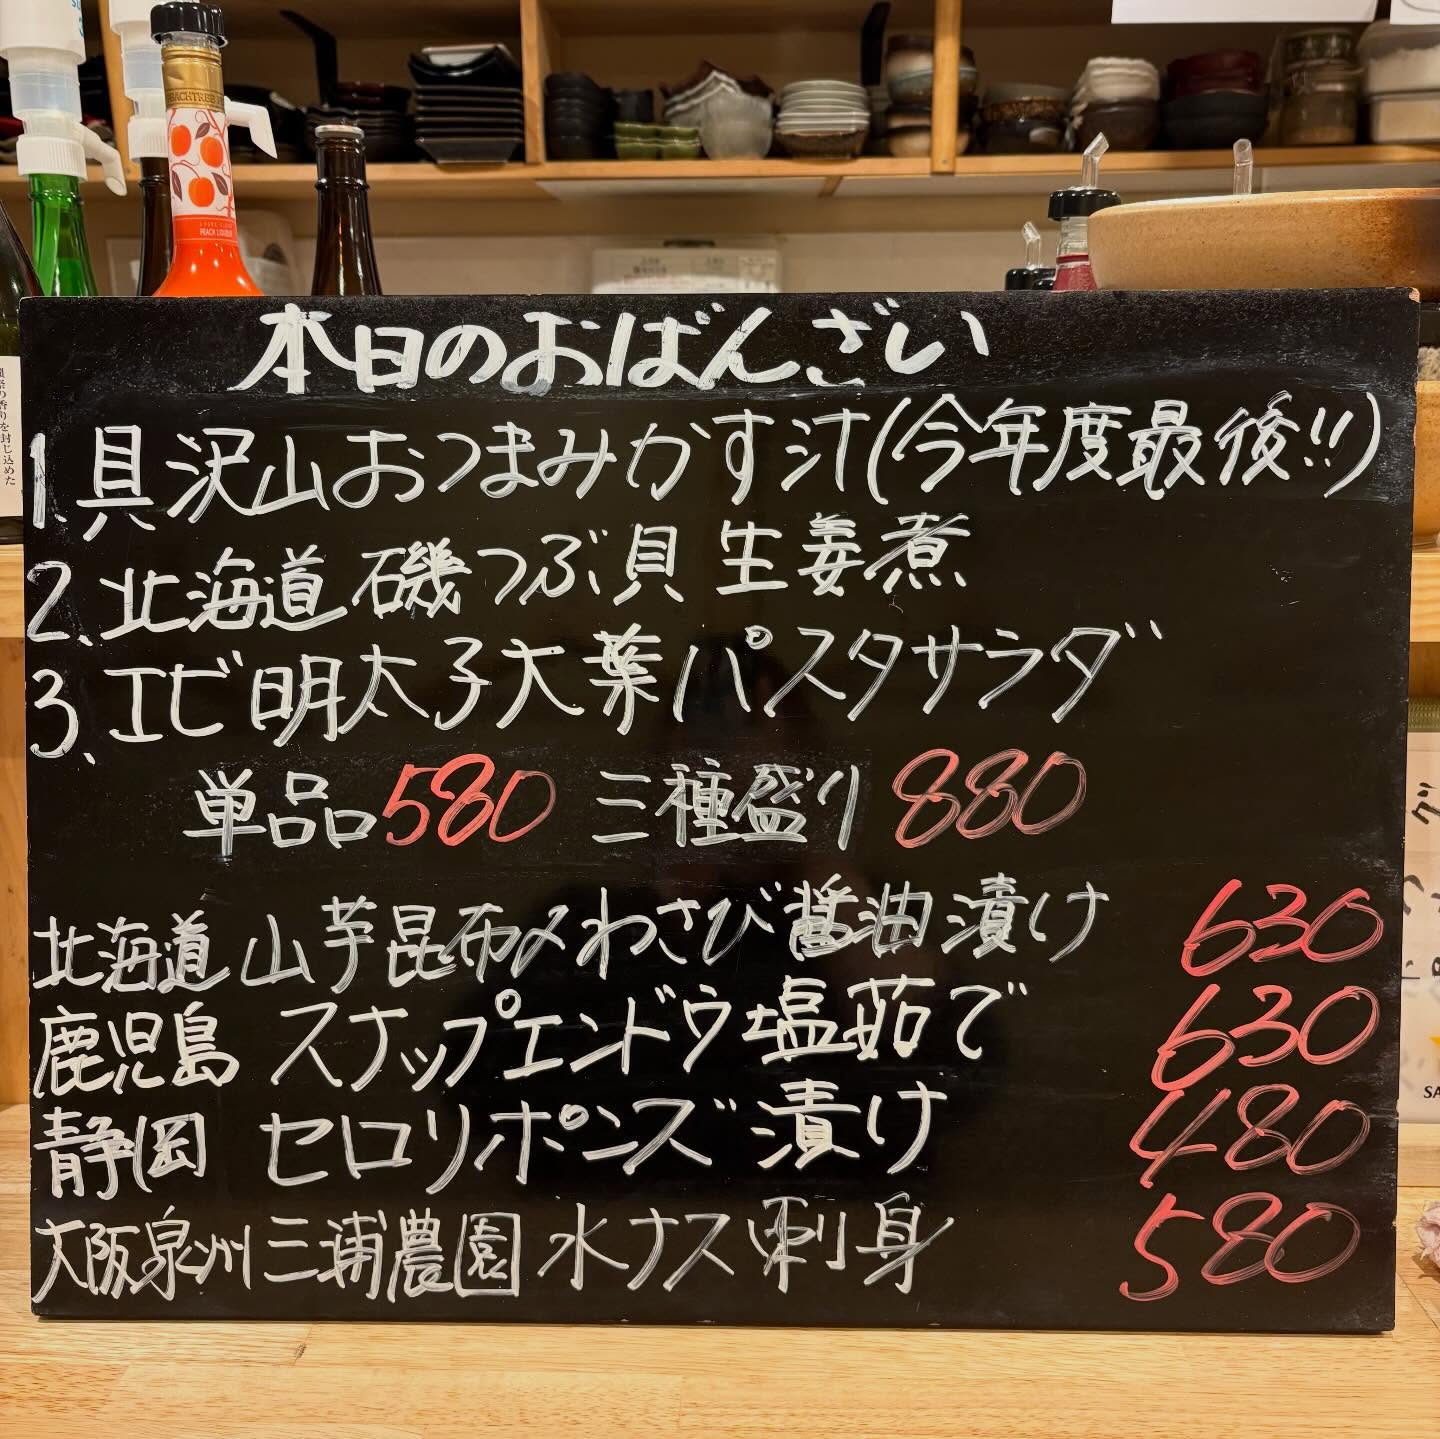 PEACHTREE
PEACH LIQUEUR
の香りを封じ込めた
本日のおばんざい
1.具沢山おつまみかす汁(今年度最後!!)
2、北海道 磯つぶ貝 生姜煮
3、エビ明太子大葉パスタサラダ
単品580 三種盛り 880
北海道 山芋昆布〆わさび醤油漬け 630
鹿児島 スナップエンドウ塩茹で 630
静岡 セロリポンズ漬け 480
大阪泉州三浦農園 水ナス刺身 580
SA